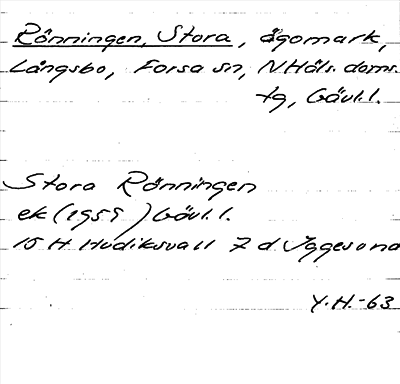 Rönningen, Stora, ägomark,
Långsbo, Forsa sn, N.Häls. doms.
tg, Gävl.l.
Stora Rönningen
ek (1959) Gävl.l.
15 H Hudiksvall 7 d Iggesund
Y.H.-63